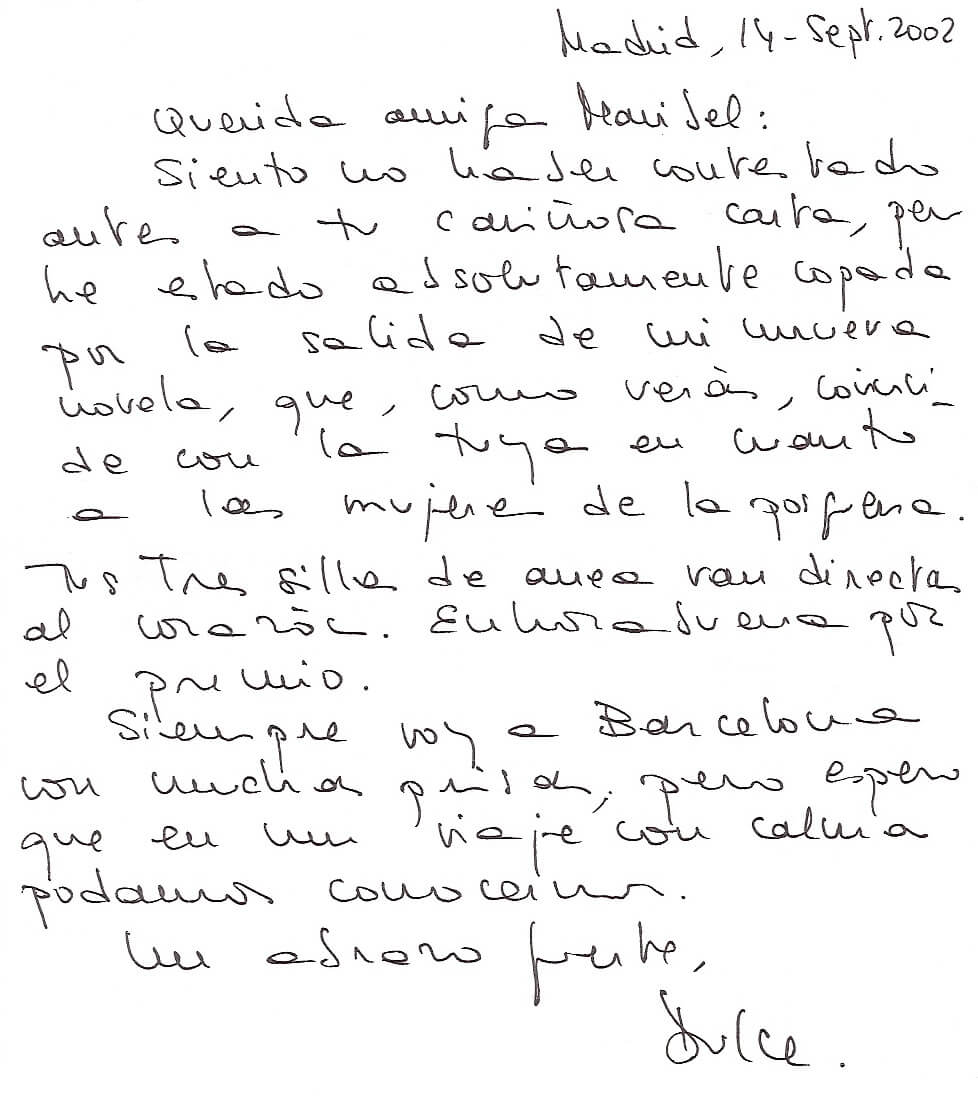 Madrid, 14-Sept. 2002
Querida amiga Marisel:
Siento no haber contestado
antes a tu cariñosa carta, pero
he estado absolutamente copada
por la salida de mi nueva
novela, que, como verás, coinci-
de con la tuya en cuanto
a las mujeres de la posguerra.
Tus Tres sillas de anea van directas
al corazón. Enhorabuena por
el premio.
Siempre voy a Barcelona
con muchas prisas, pero espero
que en un viaje con calma
podamos conocernos.
Un abrazo fuerte,
Dulce.